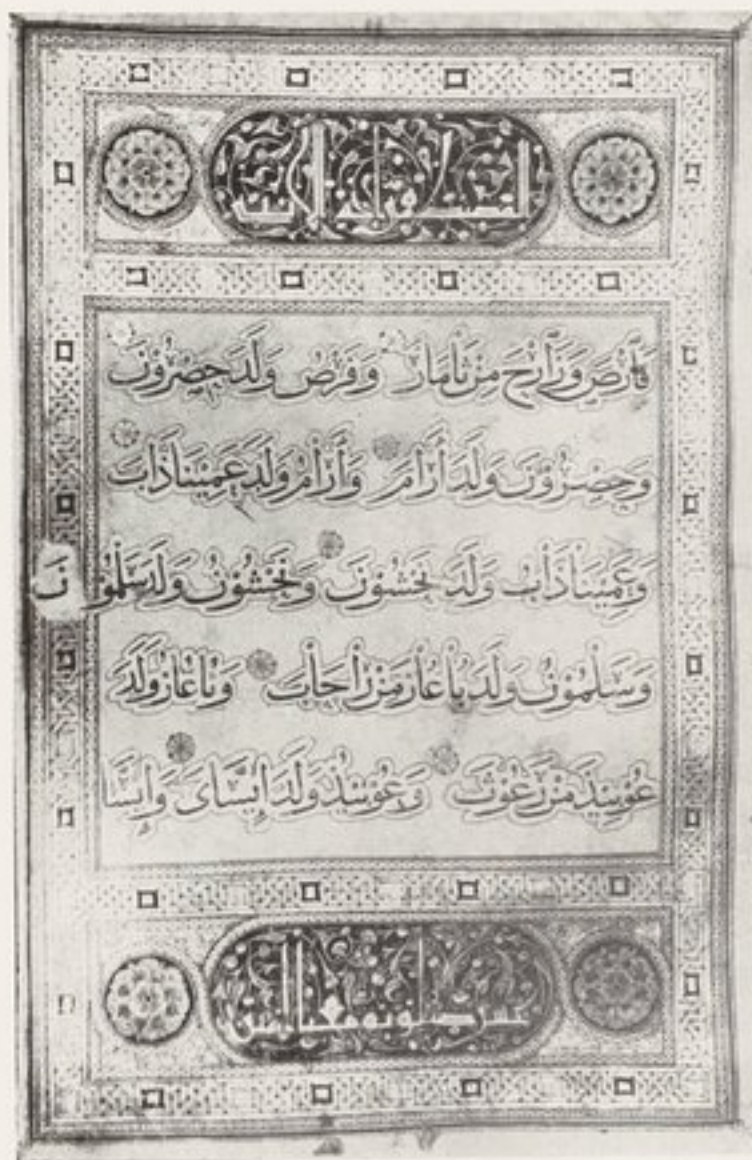 فَارَصَ وَزَارَحَ مِنْ ثَامَارَ وَفَرَصُ وَلَدَ حِصْرُوْنَ
وَحِصْرُوْنَ وَلَدَ أَرَامَ وَأَرَامُ وَلَدَ عَمِيْنَاذَابَ
وَعَمِيْنَاذَابُ وَلَدَ نَخْشُوْنَ وَنَخْشُوْنُ وَلَدَ سَلْمُوْنَ
وَسَلْمُوْنُ وَلَدَ بَاعَازَ مِنْ رَاحَابَ وَبَاعَازُ وَلَدَ
عُوْبِيْذَ مِنْ رَعُوْثَ وَعُوْبِيْذُ وَلَدَ إِيْسَّايَ وَإِيْسَّا